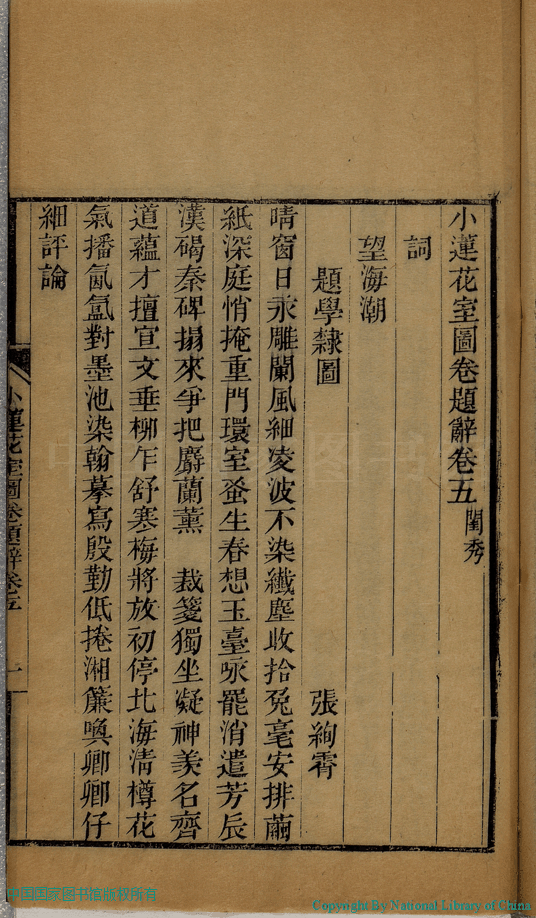 小蓮花室圖卷題辭卷五 閨秀
詞
望海潮
題學隸圖 張絢霄
晴窗日永雕闌風細凌波不染纖塵收拾兔毫安排繭
紙深庭悄掩重門環室盎生春想玉臺詠罷消遣芳辰
漢碣秦碑搨來爭把麝蘭薰 裁箋獨坐凝神羨名齊
道蘊才擅宣文垂柳乍舒寒梅將放初停北海清樽花
氣播氤氳對墨池染翰摹寫殷勤低捲湘簾喚卿卿仔
細評論
小蓮花室圖卷題辭卷五 一
中国国家图书馆版权所有
Copyright By National Library of China